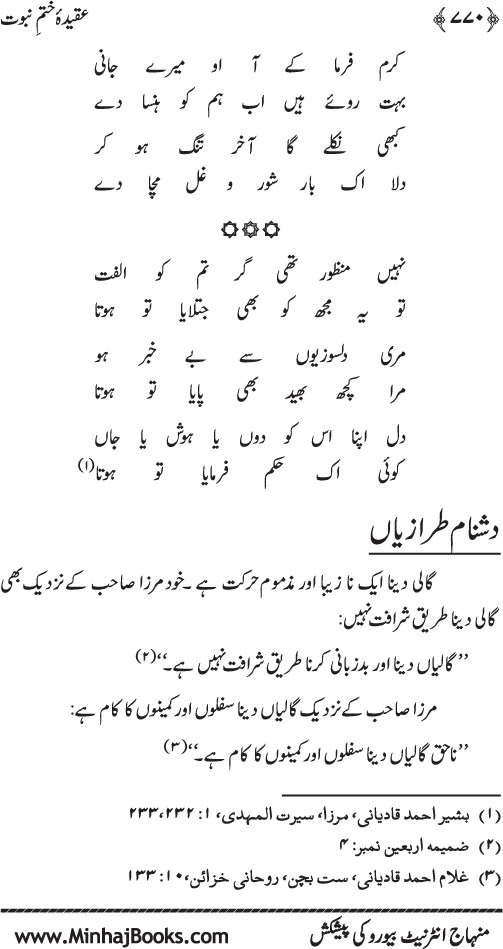 ﴿۷۷۰﴾ عقیدۂ ختمِ نبوت
کرم فرما کے آ او میرے جانی
بہت روئے ہیں اب ہم کو ہنسا دے
کبھی نکلے گا آخر تنگ ہو کر
دلا اک بار شور و غل مچا دے
نہیں منظور تھی گر تم کو الفت
تو یہ مجھ کو بھی جتلایا تو ہوتا
مری دلسوزیوں سے بے خبر ہو
مرا کچھ بھید بھی پایا تو ہوتا
دل اپنا اس کو دوں یا ہوش یا جاں
کوئی اک حکم فرمایا تو ہوتا(۱)
دشنام طرازیاں
گالی دینا ایک نا زیبا اور مذموم حرکت ہے ۔خود مرزا صاحب کے نزدیک بھی
گالی دینا طریق شرافت نہیں:
’’گالیاں دینا اور بدزبانی کرنا طریق شرافت نہیں ہے۔‘‘(۲)
مرزا صاحب کے نزدیک گالیاں دینا سفلوں اور کمینوں کا کام ہے:
’’ناحق گالیاں دینا سفلوں اور کمینوں کا کام ہے۔‘‘(۳)
(۱) بشیر احمد قادیانی، مرزا، سیرت المہدی، ۱: ۲۳۲،۲۳۳
(۲) ضمیمہ اربعین نمبر: ۴
(۳) غلام احمد قادیانی، ست بچن، روحانی خزائن،۱۰: ۱۳۳
منہاج انٹرنیٹ بیورو کی پیشکش www.MinhajBooks.com